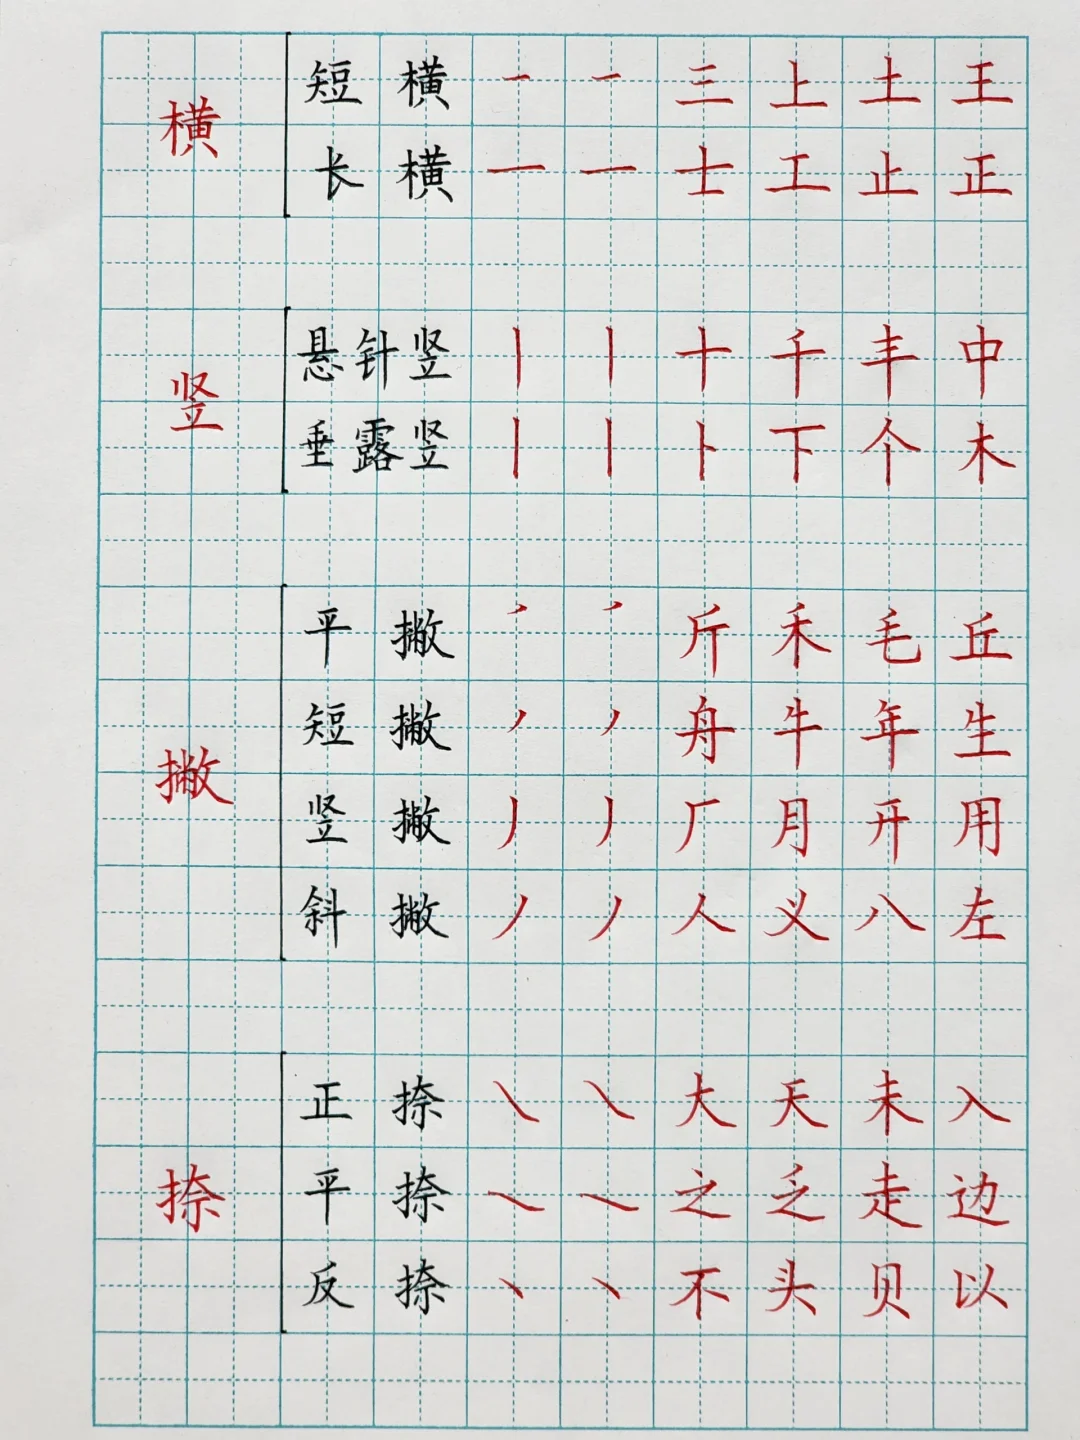 横
短横 一 一 三 上 土 王
长横 一 一 士 工 止 正
竖
悬针竖 丨 丨 十 千 丰 中
垂露竖 丨 丨 卜 下 个 木
撇
平撇 ㇒ ㇒ 斤 禾 毛 丘
短撇 ㇒ ㇒ 舟 牛 年 生
竖撇 丿 丿 厂 月 开 用
斜撇 丿 丿 人 义 八 左
捺
正捺 ㇏ ㇏ 大 天 未 入
平捺 ㇏ ㇏ 之 乏 走 边
反捺 ㇔ ㇔ 不 头 贝 以